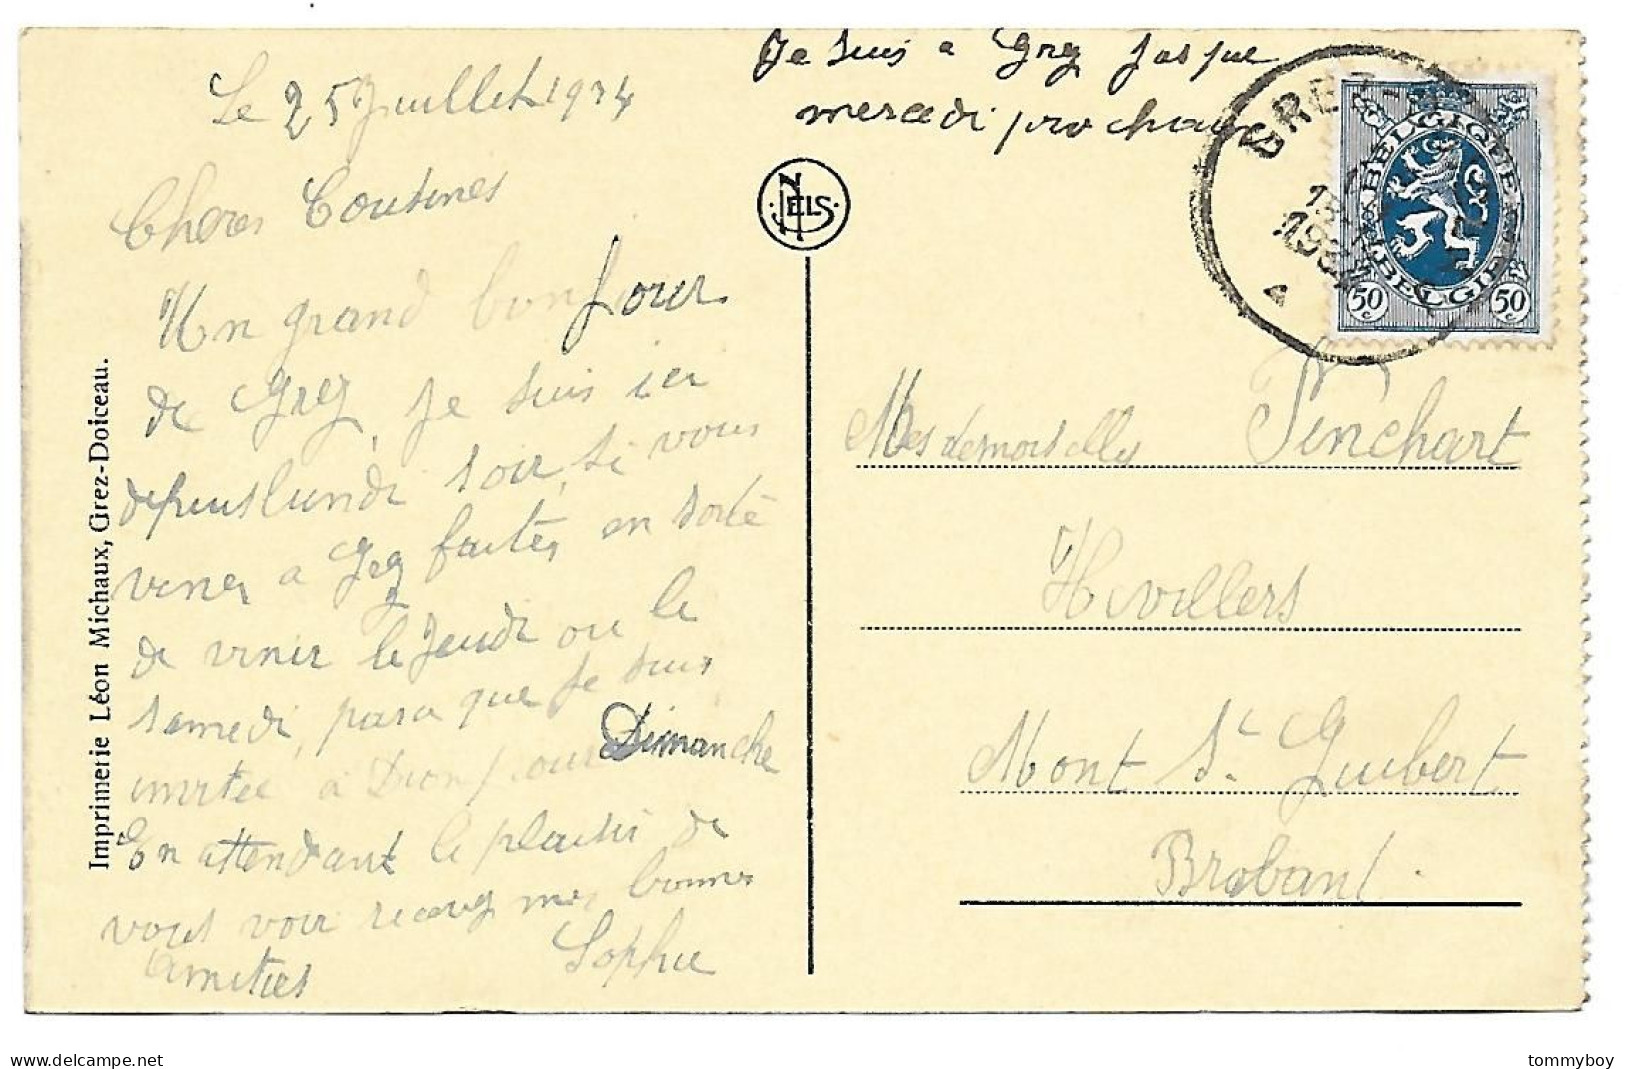 Je suis a Grez jusque
mercredi prochain
Le 25 Juillet 1934
Cheres Cousines
Un grand bonjour
de Grez, Je suis ici
depuis lundi soir, si vous
vener a Grez faites en sorte
de venir le Jeudi ou le
samedi, parce que je suis
invitée à Dion pour Dimanche
En attendant le plaisir de
vous voir recevez mes bonnes
Amitiés Sophie
Imprimerie Léon Michaux, Grez-Doiceau.
NELS
GREZ
1934
BELGIQUE
BELGIE
50 c
50 c
Mesdemoiselles Pinchart
Hevillers
Mont St. Guibert
Brabant.
tommyboy
delcampe.net